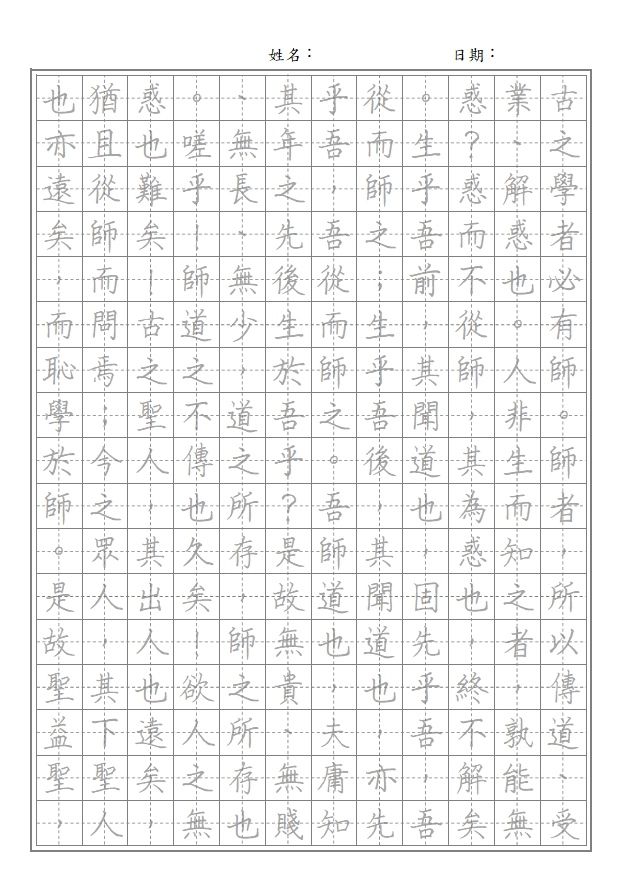 姓名：
日期：
古之學者必有師。師者，所以傳道、受
業、解惑也。人非生而知之者，孰能無
惑？惑而不從師，其為惑也，終不解矣
。生乎吾前，其聞道也，固先乎吾，吾
從而師之；生乎吾後，其聞道也，亦先
乎吾，吾從而師之。吾師道也，夫庸知
其年之先後生於吾乎？是故無貴、無賤
、無長、無少，道之所存，師之所存也
。嗟乎！師道之不傳也久矣！欲人之無
惑也難矣！古之聖人，其出人也遠矣，
猶且從師而問焉；今之眾人，其下聖人
也亦遠矣，而恥學於師。是故聖益聖，